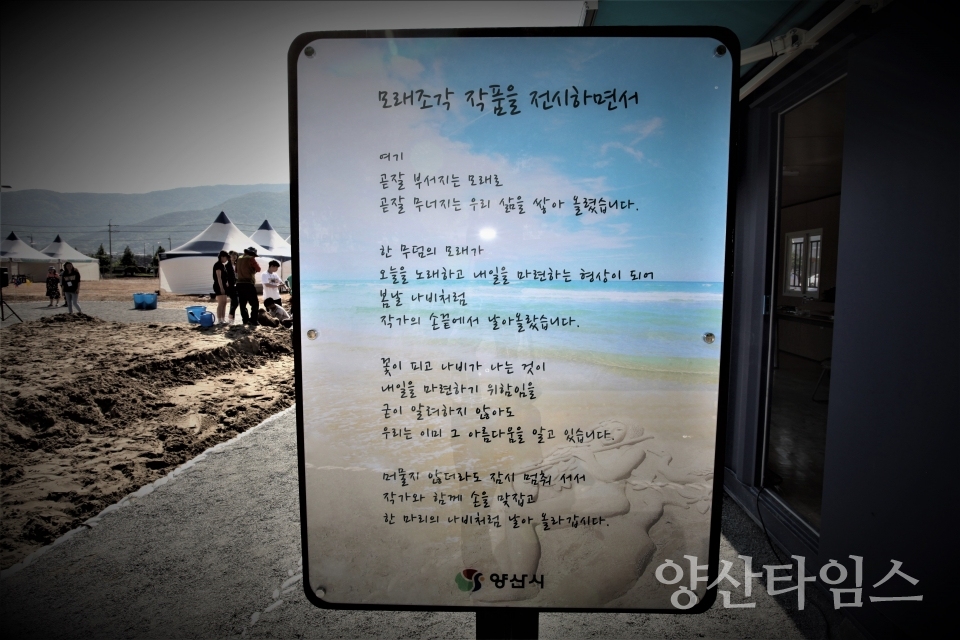 모래조각 작품을 전시하면서
여기
곧잘 부서지는 모래로
곧잘 무너지는 우리 삶을 쌓아 올렸습니다.
한 무덤의 모래가
오늘을 노래하고 내일을 마련하는 형상이 되어
봄날 나비처럼
작가의 손끝에서 날아올랐습니다.
꽃이 피고 나비가 나는 것이
내일을 마련하기 위함임을
굳이 알려하지 않아도
우리는 이미 그 아름다움을 알고 있습니다.
머물지 않더라도 잠시 멈춰 서서
작가와 함께 손을 맞잡고
한 마리의 나비처럼 날아 올라갑시다.
양산시
양산타임스